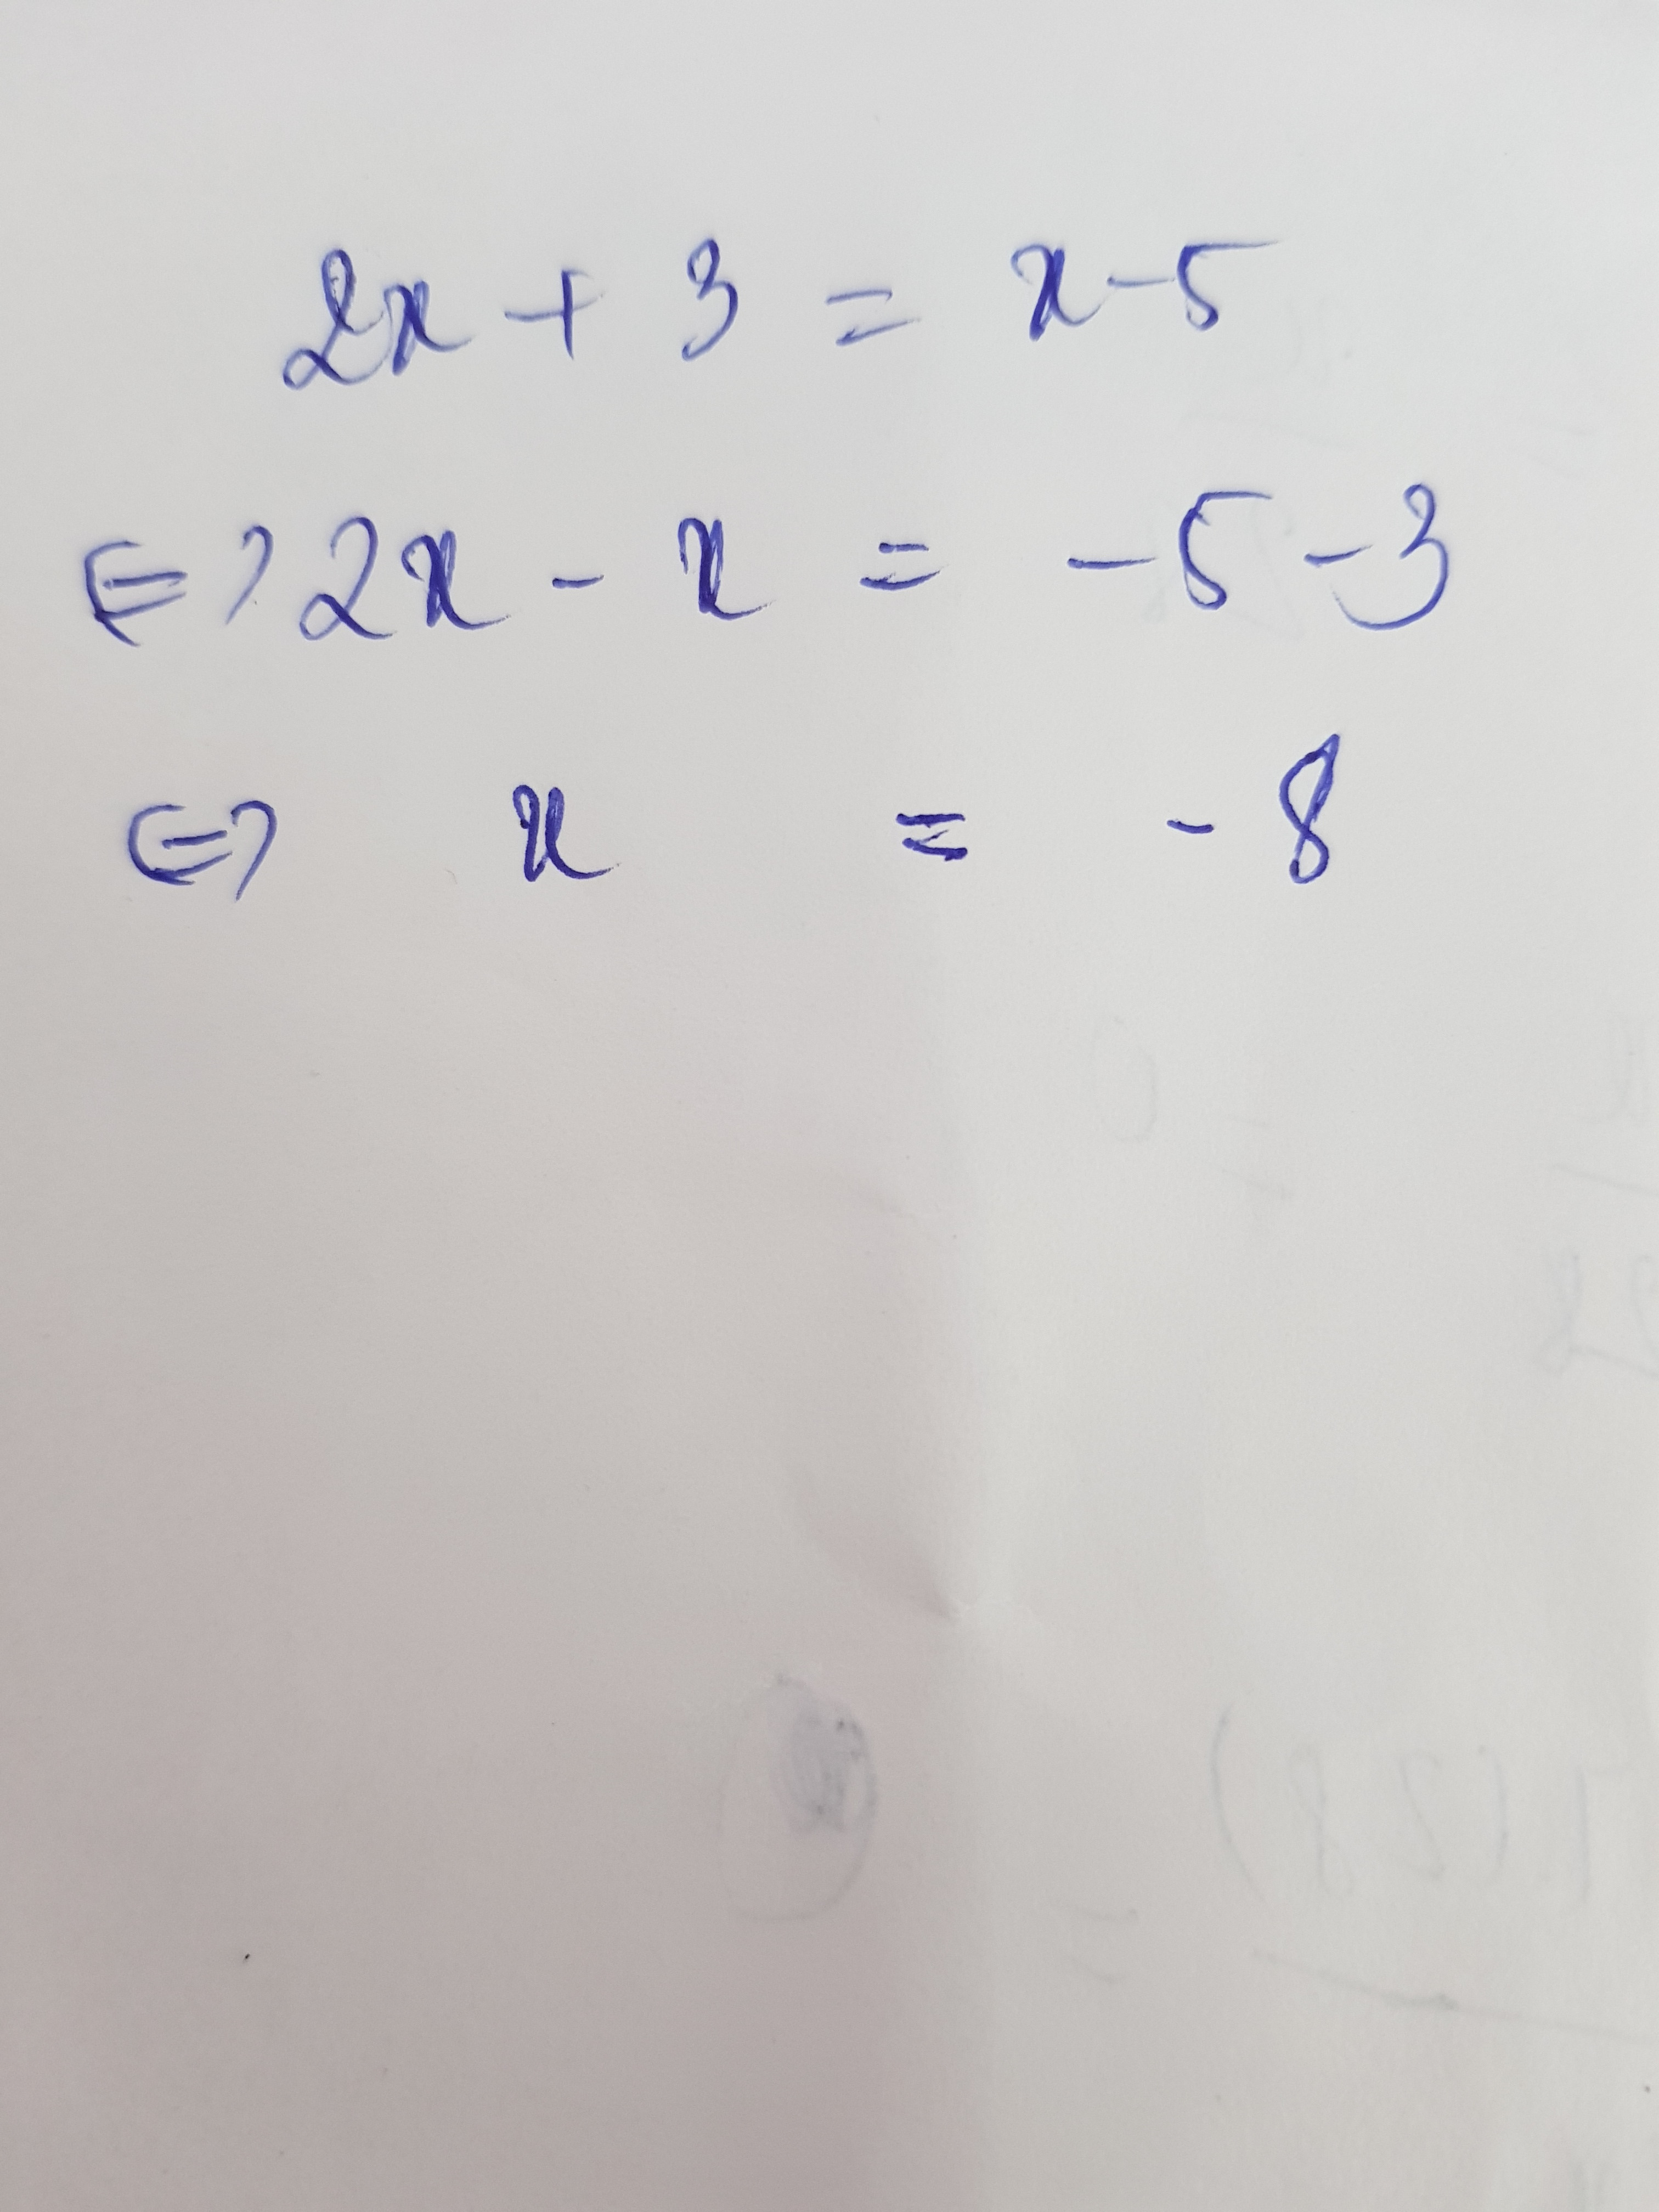 2x + 3 = x - 5
⇔ 2x - x = -5 - 3
⇔ x = -8